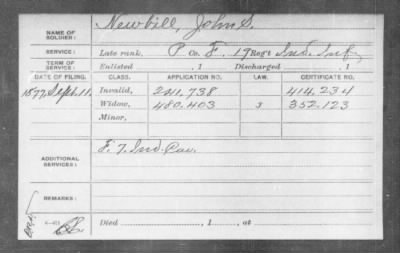 NAME OF SOLDIER: Newbill, John S.
SERVICE: Late rank, P Co. F, 19 Reg't Ind. Inf.
TERM OF SERVICE: Enlisted , 1 Discharged , 1
DATE OF FILING. CLASS. APPLICATION NO. LAW. CERTIFICATE NO.
1877, Sept. 11. Invalid, 241,738 414,234
Widow, 480,403 3 352,123
Minor,
ADDITIONAL SERVICES: F. 7. Ind. Cav.
REMARKS:
Died , 1 , at